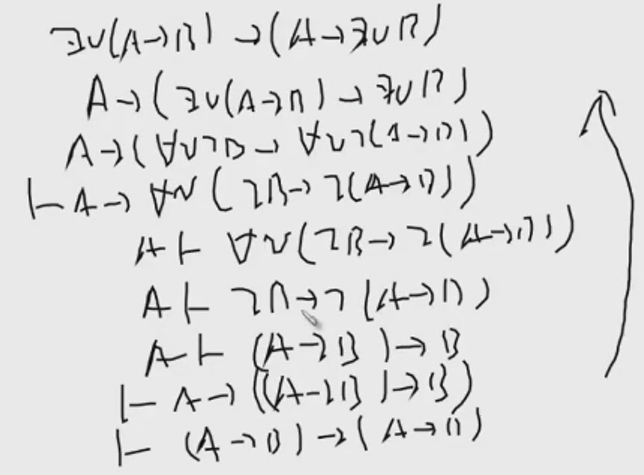 ∃v(A→B) →(A→∃vB)
A→(∃v(A→B)→∃vB)
A→(∀v¬B→∀v¬(A→B))
⊢A→∀v(¬B→¬(A→B))
A⊢ ∀v(¬B→¬(A→B))
A⊢ ¬B→¬(A→B)
A⊢ (A→B)→B
⊢ A→((A→B)→B)
⊢ (A→B)→(A→B)